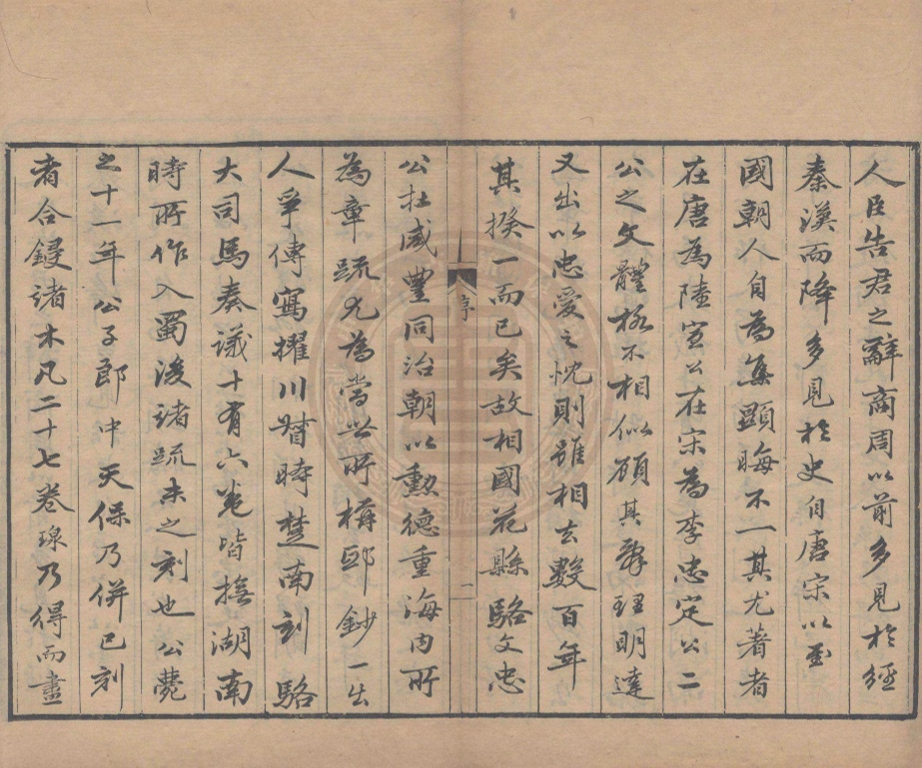 人臣告君之辭商周以前多見於經
秦漢而降多見於史自唐宋以至
國朝人自為集顯晦不一其尤著者
在唐為陸宣公在宋為李忠定公二
公之文體格不相似顧其辭理明達
又出以忠愛之忱則雖相去數百年
其揆一而已矣故相國花縣駱文忠
序 一
公在咸豐同治朝以勳德重海内所
為章疏尤為當世所稱邸鈔一出
人爭傳寫擢川督時楚南刻駱
大司馬奏議十有六卷皆撫湖南
時所作入蜀後諸疏未之刻也公薨
之十一年公子郎中天保乃併已刻
者合鋟諸木凡二十七卷璟乃得而盡